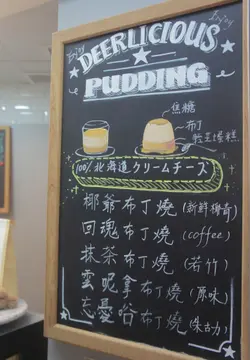 Enjoy Enjoy
DEERLICIOUS
PUDDING
焦糖
布丁
軟芝士蛋糕
100%北海道クリームチーズ
椰爺布丁燒(新鮮椰奇)
回魂布丁燒(coffee)
抹茶布丁燒(若竹)
雲呢拿布丁燒(原味)
忘憂哈布丁燒(朱古力)